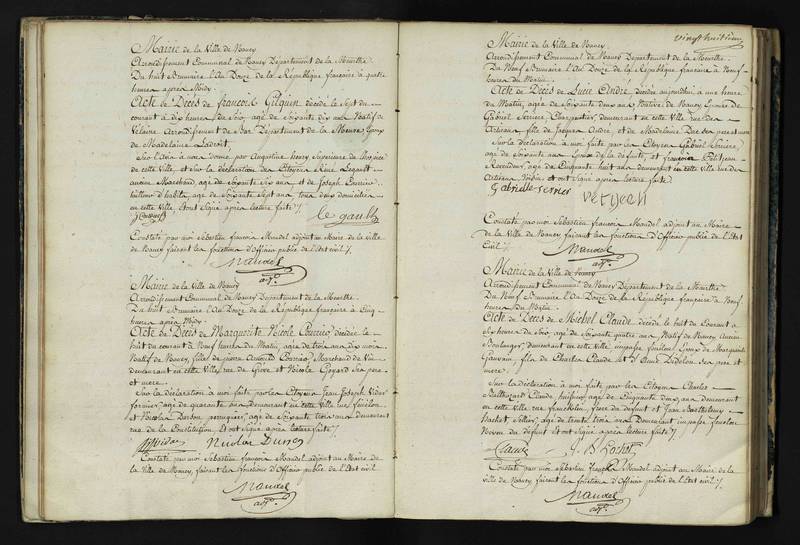 Mairie de la Ville de Nancy
Arrondissement Communal de Nancy Département de la Meurthe.
Du huit Brumaire l'an Douze de la République française à quatre
heures après Midy.
Acte de Décès de françois Gilquin décédé le Sept du
courant à dix heures du Soir, agé de Soixante dix ans Natif de
Vélaine Arrondissement de Bar Département de la Meuse Epoux
de Magdelaine
Sur l'avis à nous donné par Augustine henry Supérieure de l'hospice
de cette Ville, et Sur la déclaration des Citoyens René Legault
ancien Marchand, agé de Soixante Six ans et de Joseph
tailleur d'habits, agé de Soixante Sept ans tous deux domiciliés
en cette Ville, et ont Signé après lecture faite ./.
le gault
Constaté par moi Sébastien françois Mandel adjoint au Maire de la Ville
de Nancy faisant les fonctions d'Officier public de l'Etat civil ./.
Mandel
adj.t
Mairie de la Ville de Nancy
Arrondissement Communal de Nancy Département de la Meurthe.
Du huit Brumaire l'an Douze de la République française à Cinq
heures après Midy.
Acte de Décès de Marguerite Nicole décédée le
huit du courant à Neuf heures du Matin, agée de trois ans dix mois
Native de Nancy, fille de pierre Antoine Marchand de Vin
demeurant en cette Ville rue de Grève et Nicole Goyard Ses père
et mere.
Sur la déclaration à moi faite par les Citoyens Jean Joseph Vidot
fermier, agé de quarante ans demeurant en cette Ville rue
et Nicolas perruquier, agé de Soixante trois ans demeurant
rue de la Constitution. Et ont Signé après lecture faite ./.
Nicolas
Constaté par moi Sébastien françois Mandel adjoint au Maire de
la Ville de Nancy, faisant les fonctions d'Officier public de l'Etat civil
Mandel
adj.t
vingt huitième
Mairie de la Ville de Nancy.
Arrondissement Communal de Nancy Département de la Meurthe.
Du Neuf Brumaire l'An Douze de la République française à Neuf
heures du Matin.
Acte de Décès de Lucie André décédée aujourd'hui à une heure
du Matin, agée de Soixante deux ans Native de Nancy Epouse de
Gabriel Charpentier, demeurant en cette Ville rue des
Artisans fille de Jacques André, et de Madelaine Ses père et mere
Sur la déclaration à moi faite par les Citoyens Gabriel
agé de Soixante ans Epoux de la défunte, et françois Petitjean
agé de Cinquante huit ans demeurant en cette Ville rue des
Artisans Voisin et ont Signé après lecture faite.
gabrielle serrier
petijean
Constaté par moi Sébastien françois Mandel adjoint au Maire
de la Ville de Nancy faisant les fonctions d'Officier public de l'Etat
Civil ./.
Mandel
adj.t
Mairie de la Ville de Nancy
Arrondissement Communal de Nancy Département de la Meurthe.
Du Neuf Brumaire l'An Douze de la République française à Neuf
heures du Matin.
Acte de Décès de Michel Claude décédé le huit du Courant à
Six heures du Soir, agé de Soixante quatre ans Natif de Nancy Ancien
Boulanger, demeurant en cette Ville impasse Epoux de Marguerite
fils de Charles Claude et d'Anne Ses père et
mere.
Sur la déclaration à moi faite par les Citoyens Charles
Balthazard Claude, huissier, agé de Cinquante deux ans demeurant
en cette Ville rue franchelin, frère du défunt et Jean Barthelemy
Bachot, Sellier, agé de trente trois ans Demeurant impasse
Neveu du défunt et ont Signé après lecture faite ./.
Claude J. B. Bachot
Constaté par moi Sébastien françois Mandel adjoint au Maire de la
Ville de Nancy faisant les fonctions d'Officier public de l'Etat civil ./.
Mandel
adj.t